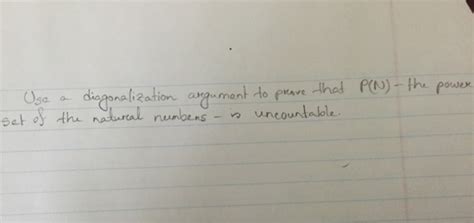 Use a diagonalization argument to prove that P(N) - the power
set of the natural numbers - is uncountable.